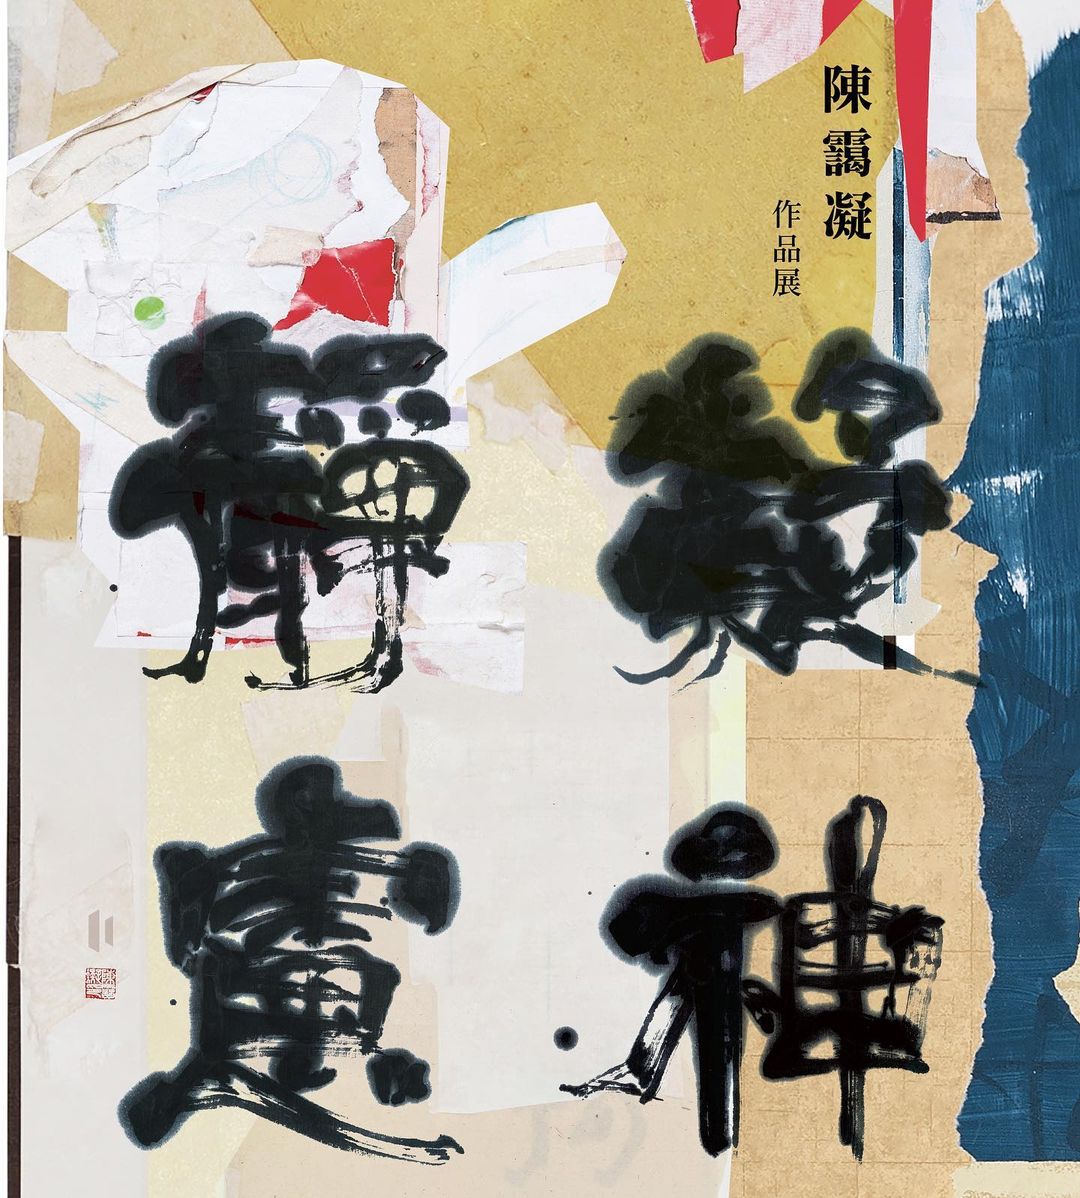 陳靄凝
作品展
凝神
靜慮